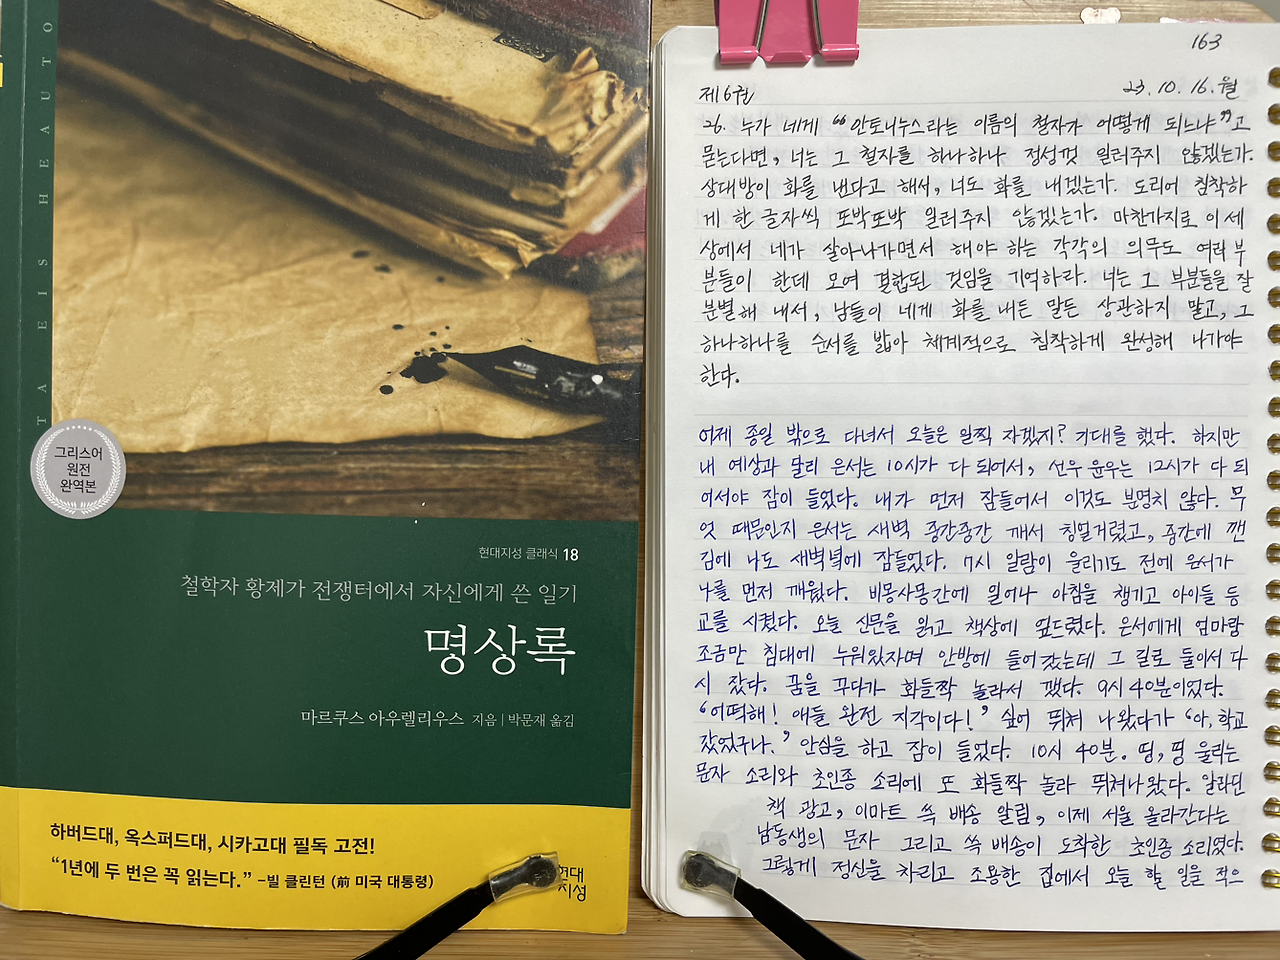 TAEISHEAUTO
그리스어
원전
완역본
현대지성 클래식 18
철학자 황제가 전쟁터에서 자신에게 쓴 일기
명상록
마르쿠스 아우렐리우스 지음 | 박문재 옮김
하버드대, 옥스퍼드대, 시카고대 필독 고전!
“1년에 두 번은 꼭 읽는다.” -빌 클린턴 (前 미국 대통령)
현대
지성
163
제6권 23. 10. 16. 월
26. 누가 네게 “안토니누스라는 이름의 철자가 어떻게 되느냐”고
묻는다면, 너는 그 철자를 하나하나 정성껏 일러주지 않겠는가.
상대방이 화를 낸다고 해서, 너도 화를 내겠는가. 도리어 침착하
게 한 글자씩 또박또박 일러주지 않겠는가. 마찬가지로 이 세
상에서 네가 살아나가면서 해야 하는 각각의 의무도 여러 부
분들이 한데 모여 결합된 것임을 기억하라. 너는 그 부분들을 잘
분별해 내서, 남들이 네게 화를 내든 말든 상관하지 말고, 그
하나하나를 순서를 밟아 체계적으로 침착하게 완성해 나가야
한다.
어제 종일 밖으로 다녀서 오늘은 일찍 자겠지? 기대를 했다. 하지만
내 예상과 달리 은서는 10시가 다 되어서, 선우 윤우는 12시가 다 되
어서야 잠이 들었다. 내가 먼저 잠들어서 이것도 분명치 않다. 무
엇 때문인지 은서는 새벽 중간중간 깨서 칭얼거렸고, 중간에 깬
김에 나도 새벽녘에 잠들었다. 7시 알람이 울리기도 전에 은서가
나를 먼저 깨웠다. 비몽사몽간에 일어나 아침을 챙기고 아이들 등
교를 시켰다. 오늘 신문을 읽고 책상에 엎드렸다. 은서에게 엄마랑
조금만 침대에 누워있자며 안방에 들어갔는데 그 길로 둘이서 다
시 잤다. 꿈을 꾸다가 화들짝 놀라서 깼다. 9시 40분이었다.
“어떡해! 애들 완전 지각이다!” 싶어 뛰쳐 나왔다가 ‘아, 학교
갔었구나.’ 안심을 하고 잠이 들었다. 10시 40분. 띵, 띵 울리는
문자 소리와 초인종 소리에 또 화들짝 놀라 뛰쳐나왔다. 알라딘
책 광고, 이마트 쓱 배송 알림, 이제 서울 올라간다는
남동생의 문자 그리고 쓱 배송이 도착한 초인종 소리였다.
그렇게 정신을 차리고 조용한 집에서 오늘 할 일을 적으